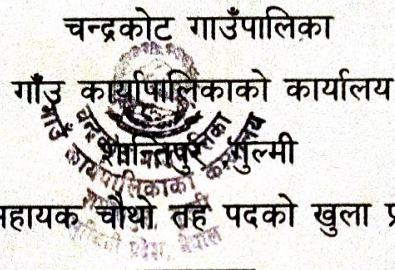 चन्द्रकोट गाउँपालिका
गाँउ कार्यापालिकाको कार्यालय
शान्तिपुर गुल्मी
सहायक चौथो तह पदको खुला